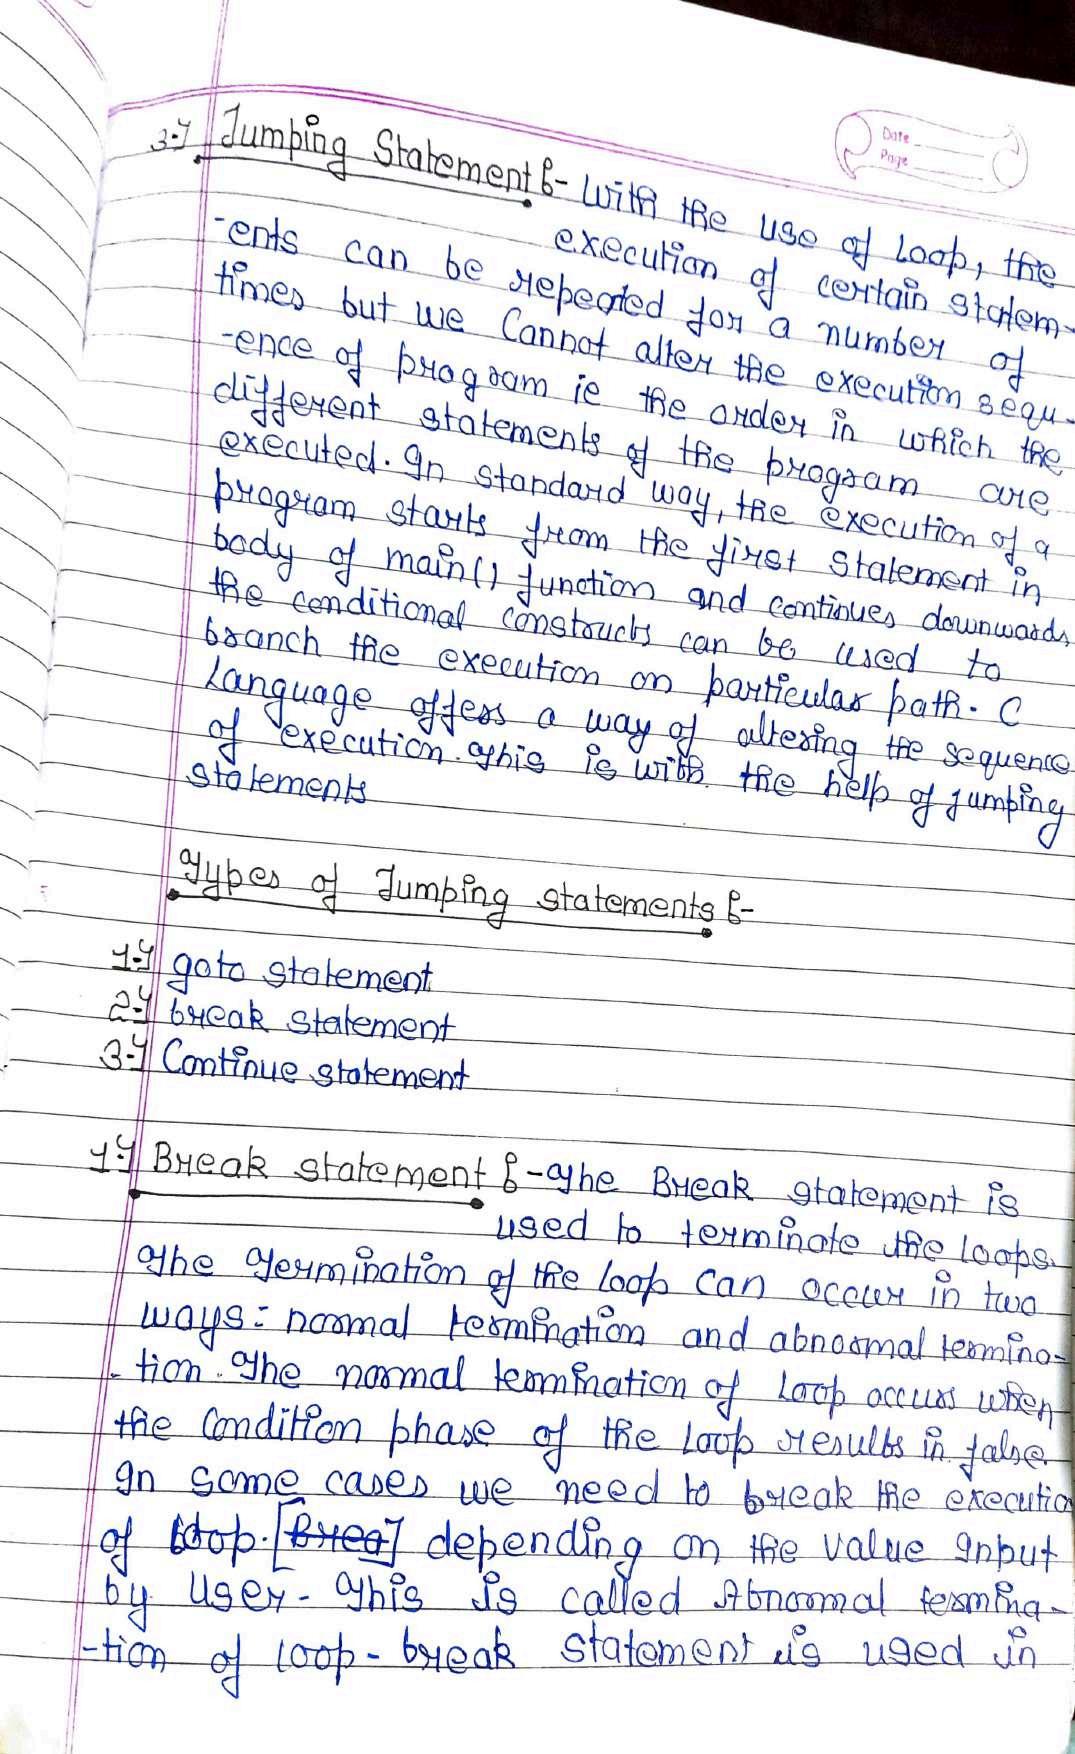 Date
Page
3.) Jumping Statement :- With the use of loop, the
execution of certain statem-
-ents can be repeated for a number of
times but we Cannot alter the execution sequ-
-ence of program ie the order in which the
different statements of the program are
executed. In standard way, the execution of a
program starts from the first Statement in
body of main() function and continues downwards,
the conditional constructs can be used to
branch the execution on particular path. C
Language offers a way of altering the sequence
of execution. This is with the help of jumping
statements
Types of Jumping statements :-
1.) goto statement
2.) break statement
3.) Continue statement
1.) Break statement :- The Break statement is
used to terminate the loops.
The Termination of the loop can occur in two
ways: normal termination and abnormal termina-
-tion. The normal termination of Loop occurs when
the Condition phase of the Loop results in false.
In some cases we need to break the executio
of loop. [Brea] depending on the value Input
by User. This is called Abnormal termina-
-tion of loop. break statement is used in